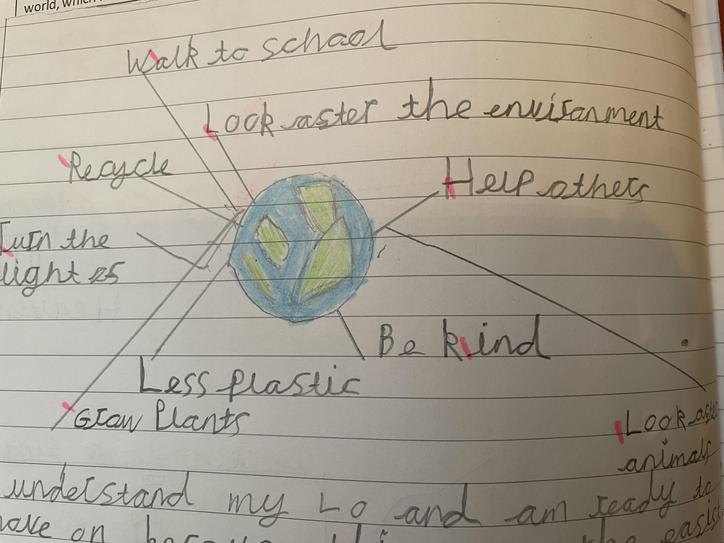 world, which
Walk to school
Look aster the envisanment
Recycle
Help others
Turn the
light es
Be kind
Less plastic
Grow Plants
Look
animals
understand my Lo and am ready to
on